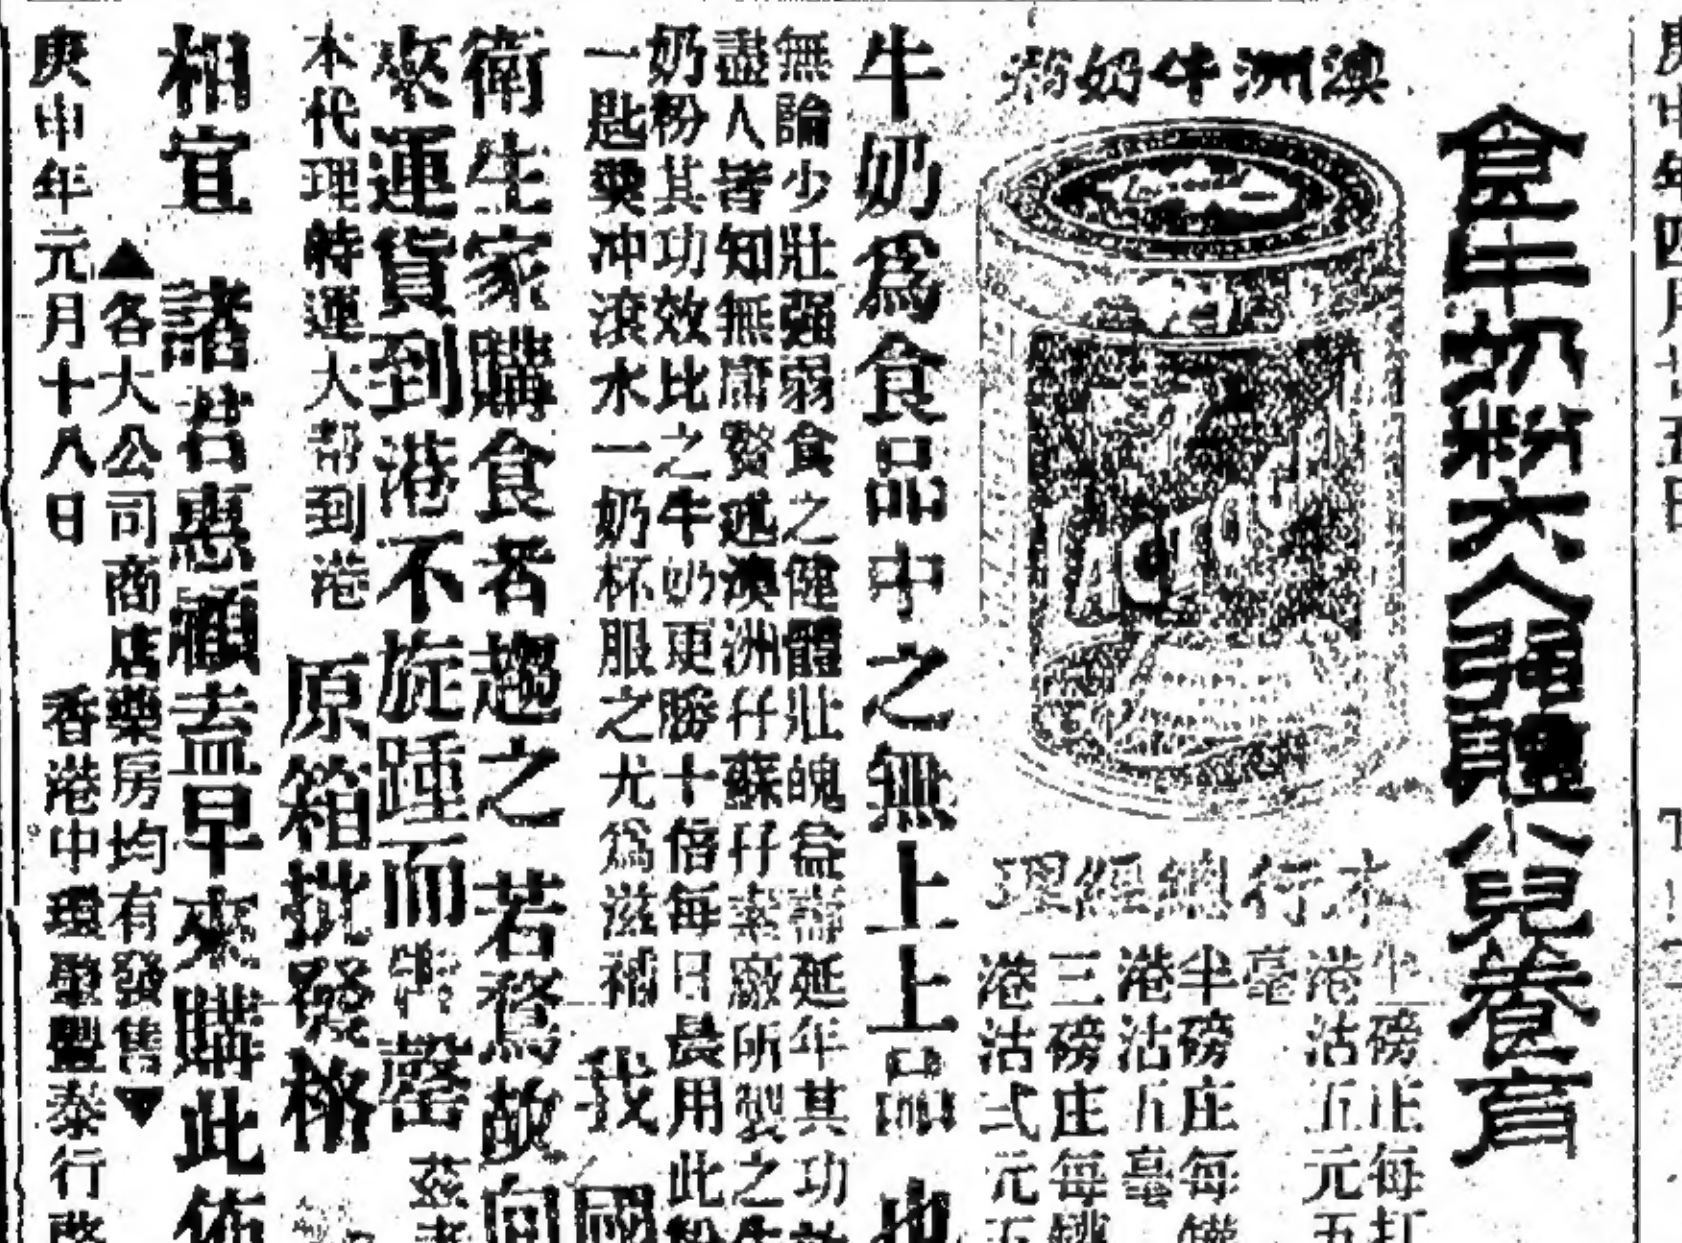 庚申年四月廿五日
食牛奶粉大人強體小兒養育
澳洲牛奶粉
LACTOG
本行總經理
半磅庄每打
港沽五元五
毫
半磅庄每罐
港沽五毫
三磅庄每罐
港沽弍元五
牛奶爲食品中之無上上品也
無論少壯强弱食之健體壯魄益壽延年其功
盡人皆知無庸贅述澳洲仔蘇仔素廠所製之牛
奶粉其功效比之牛奶更勝十倍每日晨用此粉
一匙羹冲滾水一奶杯服之尤爲滋補 我國
衛生家購食者趨之若鶩故向
來運貨到港不旋踵而 罄 茲
本代理時運大帮到港 原箱批發格
相宜 諸君惠顧盍早來購此佈
▲各大公司商店藥房均有發售▼
庚申年元月十八日 香港中環肇豐泰行啓